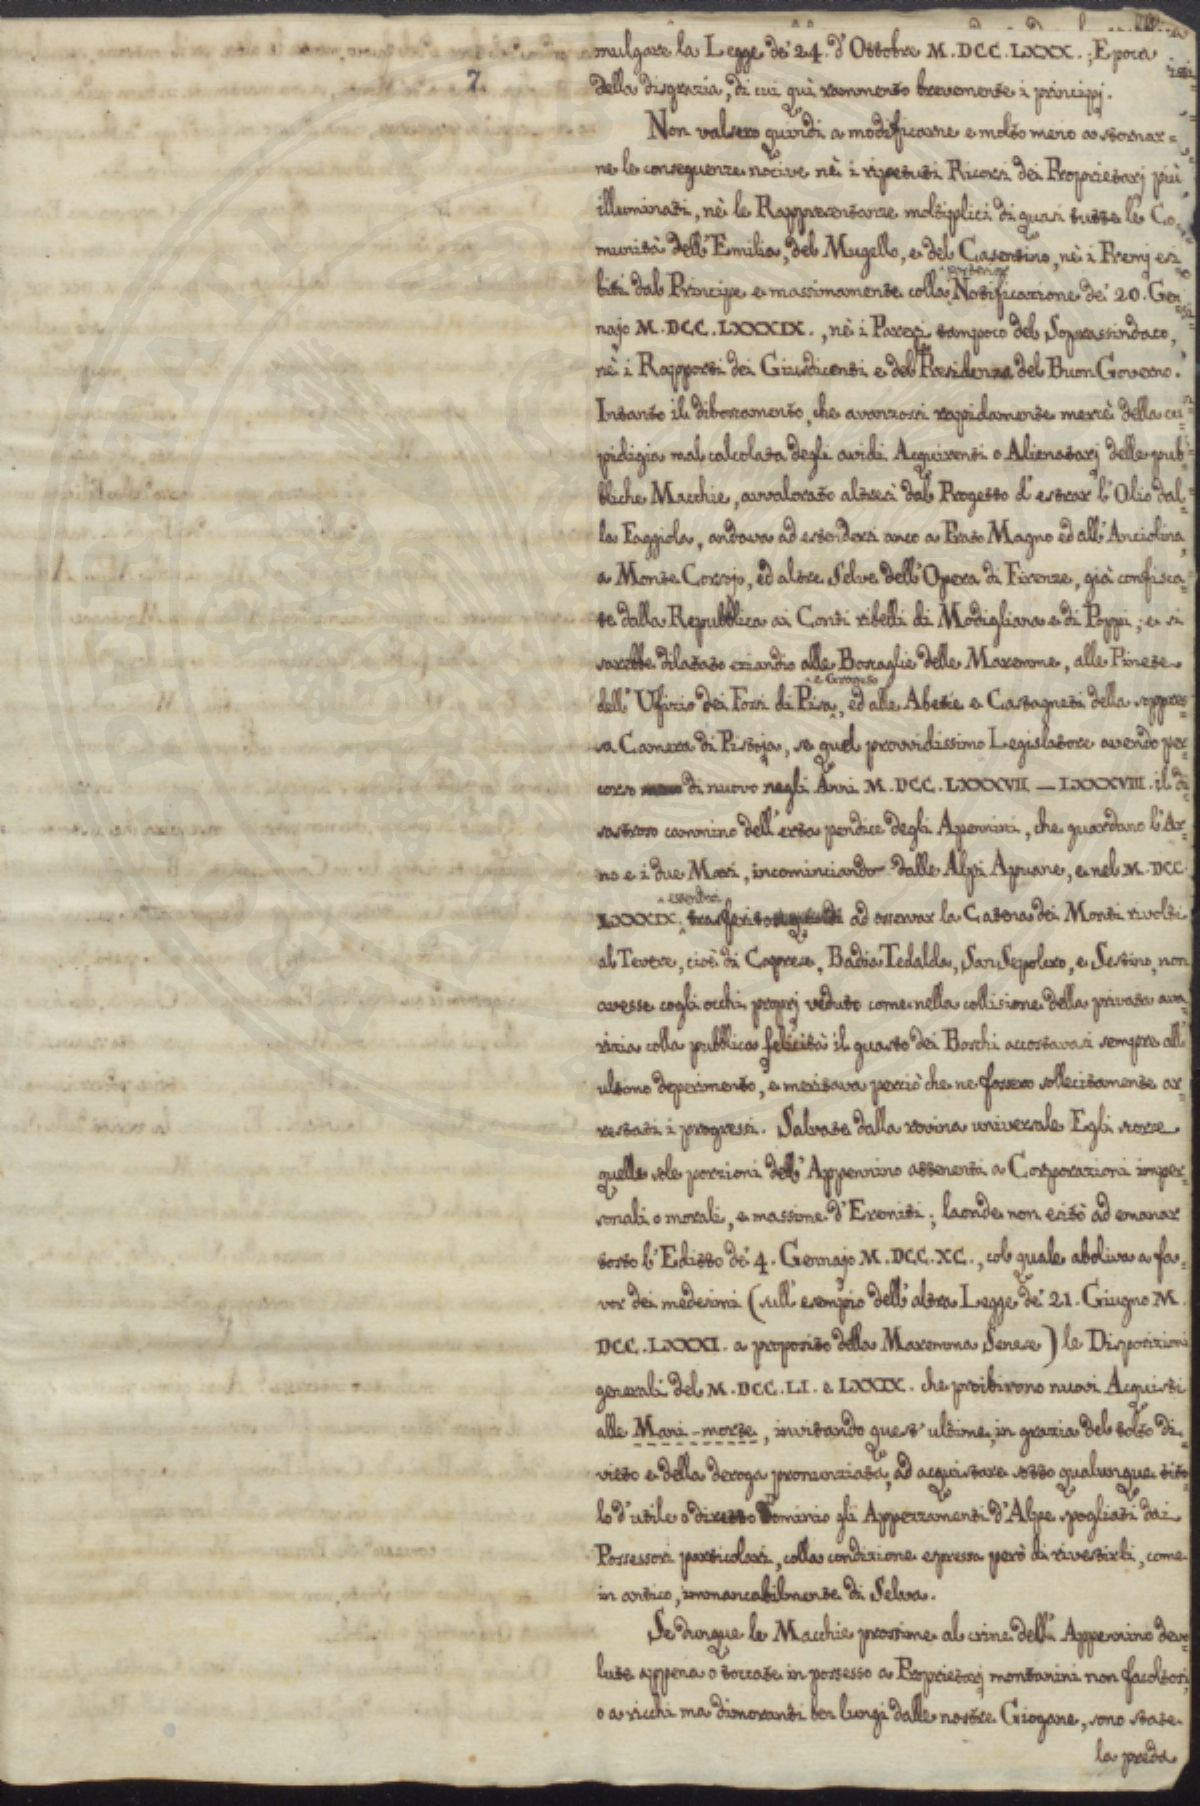 7
mulgare la Legge de' 24. d'Ottobre M.DCC.LXXX.; Epoca
della disgrazia, di cui quì rammento brevemente i principj.
Non valsero quindi a modificarne e molto meno a stornar=
ne le conseguenze nocive nè i ripetuti Ricorsi dei Proprietarj più
illuminati, nè le Rappresentanze moltiplici di quasi tutte le Co=
munità dell'Emilia, del Mugello, e del Casentino, nè i Premj esi=
biti dal Principe e massimamente colla posterior Notificazione de' 20. Gen=
najo M.DCC.LXXXIX., nè i Pareri tampoco del Soprassindaco,
nè i Rapporti dei Giusdicenti e del Presidente del Buon Governo.
Intanto il diboscamento, che avanzossi rapidamente mercè della cu=
pidigia mal calcolata degli avidi Acquirenti o Alienatarj delle pub=
bliche Macchie, avvalorato altresì dal Progetto d'estrar l'Olio dal=
la Faggiola, andava ad estendersi anco a Prato Magno ed all'Anciolina,
a Monte Corsojo, ed altre Selve dell'Opera di Firenze, già confisca=
te dalla Repubblica ai Conti ribelli di Modigliana e di Poppi; e si
sarebbe dilatato eziandio alle Boscaglie delle Maremme, alle Pinete
dell'Ufizio dei Fossi di Pisa e Grosseto, ed alle Abetie e Castagneti della soppres=
sa Camera di Pistoja, se quel provvidissimo Legislatore avendo per=
corso di nuovo negli Anni M.DCC.LXXXVII — LXXXVIII. il di=
sastroso cammino dell'erta pendice degli Apennini, che guardano l'Ar=
no e i due Mari, incominciando dalle Alpi Apuane, e nel M.DCC.
LXXXIX. essendosi trasferito ad osservar la Catena dei Monti rivolti
al Tevere, cioè di Caprese, Badia Tedalda, San Sepolcro, e Sestino, non
avesse cogli occhi proprj veduto come nella collisione della privata ava=
rizia colla pubblica felicità il guasto dei Boschi accostavasi sempre all'
ultimo deperimento, e meritava perciò che ne fossero sollecitamente ar=
restati i progressi. Salvate dalla rovina universale Egli scorse
quelle sole porzioni dell'Appennino attenenti a Corporazioni imper=
sonali o morali, e massime d'Eremiti; laonde non esitò ad emanar
tosto l'Editto de' 4. Gennajo M.DCC.XC., col quale aboliva a fa=
vor dei medesimi (sull'esempio dell'altra Legge de' 21. Giugno M.
DCC.LXXXI. a proposito della Maremma Senese) le Disposizioni
generali del M.DCC.LI. e LXXIX. che proibirono nuovi Acquisti
alle Mani-morte, invitando quest'ultime, in grazia del tolto di=
vieto e della deroga pronunziata, ad acquistare sotto qualunque tito=
lo d'utile o diretto Dominio gli Appezzamenti d'Alpe spogliati dai
Possessori particolari, colla condizione espressa però di rivestirli, come
in antico, immancabilmente di Selva.
Se dunque le Macchie prossime al crine dell'Appennino devo=
lute appena o toccate in possesso a Proprietarj montanini non facoltosi,
o a ricchi ma dimoranti ben lungi dalle nostre Giogane, sono state
la preda